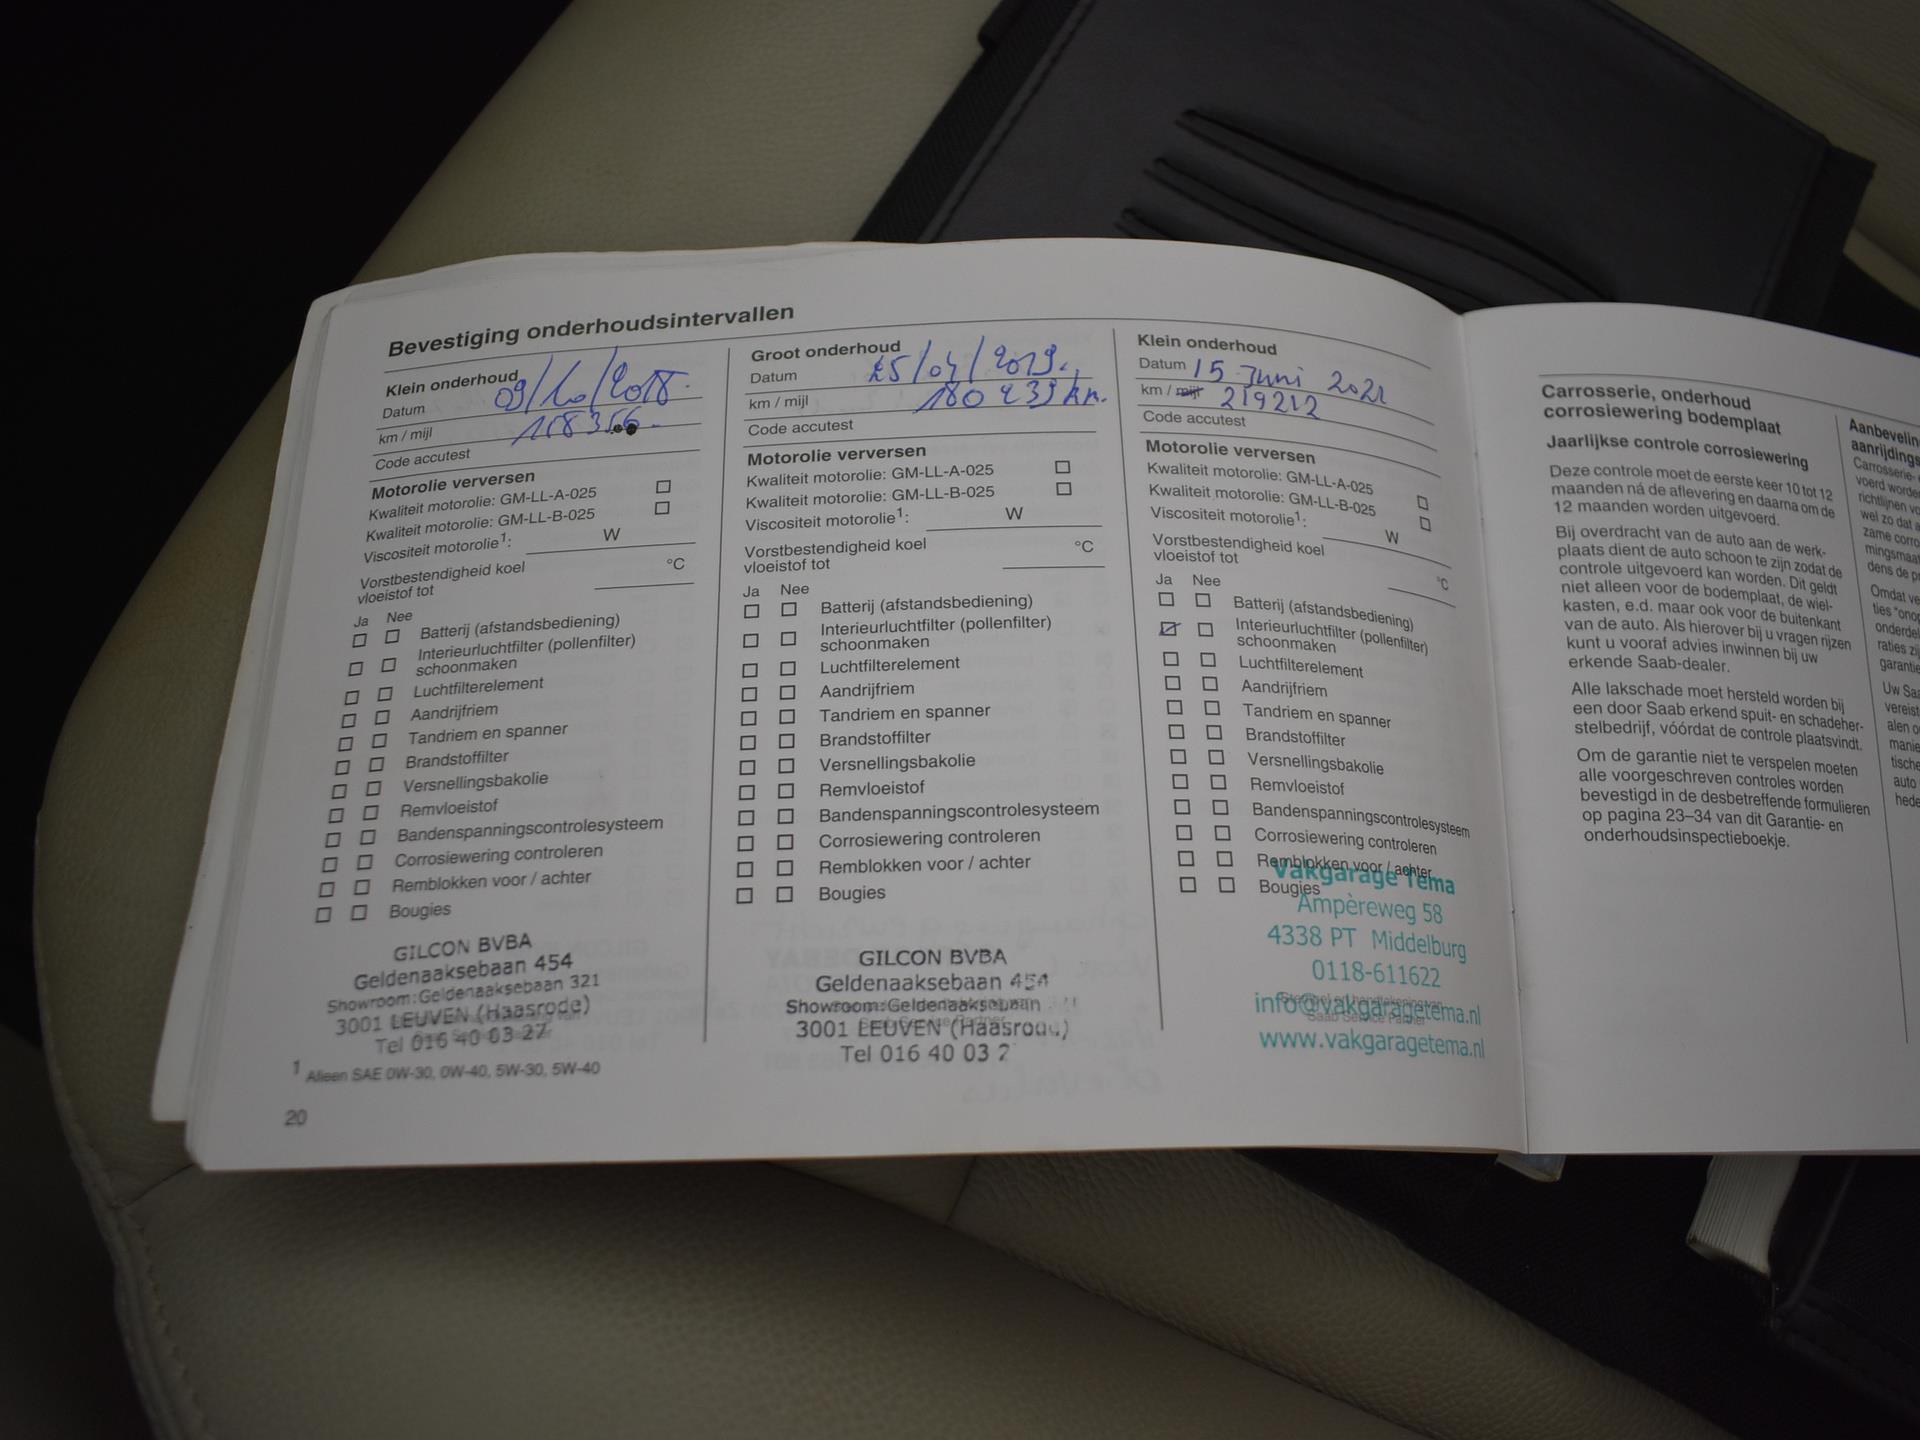 Bevestiging onderhoudsintervallen
Klein onderhoud
Datum 09/10/2018
km / mijl 158356
Code accutest
Motorolie verversen
Kwaliteit motorolie: GM-LL-A-025
Kwaliteit motorolie: GM-LL-B-025
Viscositeit motorolie1: W
Vorstbestendigheid koel
vloeistof tot °C
Ja Nee
Batterij (afstandsbediening)
Interieurluchtfilter (pollenfilter)
schoonmaken
Luchtfilterelement
Aandrijfriem
Tandriem en spanner
Brandstoffilter
Versnellingsbakolie
Remvloeistof
Bandenspanningscontrolesysteem
Corrosiewering controleren
Remblokken voor / achter
Bougies
GILCON BVBA
Geldenaaksebaan 454
Showroom:Geldenaaksebaan 321
3001 LEUVEN (Haasrode)
Tel 016 40 03 27
1 Alleen SAE 0W-30, 0W-40, 5W-30, 5W-40
20
Groot onderhoud
Datum 25/04/2019.
km / mijl 180 239 km.
Code accutest
Motorolie verversen
Kwaliteit motorolie: GM-LL-A-025
Kwaliteit motorolie: GM-LL-B-025
Viscositeit motorolie1: W
Vorstbestendigheid koel
vloeistof tot °C
Ja Nee
Batterij (afstandsbediening)
Interieurluchtfilter (pollenfilter)
schoonmaken
Luchtfilterelement
Aandrijfriem
Tandriem en spanner
Brandstoffilter
Versnellingsbakolie
Remvloeistof
Bandenspanningscontrolesysteem
Corrosiewering controleren
Remblokken voor / achter
Bougies
GILCON BVBA
Geldenaaksebaan 454
Showroom:Geldenaaksebaan
3001 LEUVEN (Haasrode)
Tel 016 40 03 2
Klein onderhoud
Datum 15 Juni 2021
km / mijl 219212
Code accutest
Motorolie verversen
Kwaliteit motorolie: GM-LL-A-025
Kwaliteit motorolie: GM-LL-B-025
Viscositeit motorolie1: W
Vorstbestendigheid koel
vloeistof tot °C
Ja Nee
Batterij (afstandsbediening)
Interieurluchtfilter (pollenfilter)
schoonmaken
Luchtfilterelement
Aandrijfriem
Tandriem en spanner
Brandstoffilter
Versnellingsbakolie
Remvloeistof
Bandenspanningscontrolesysteem
Corrosiewering controleren
Remblokken voor / achter
Bougies
Vakgarage Tema
Ampèreweg 58
4338 PT Middelburg
0118-611622
Stempel en handtekening van
info@vakgaragetema.nl
Saab Service Partner
www.vakgaragetema.nl
Carrosserie, onderhoud
corrosiewering bodemplaat
Jaarlijkse controle corrosiewering
Deze controle moet de eerste keer 10 tot 12
maanden ná de aflevering en daarna om de
12 maanden worden uitgevoerd.
Bij overdracht van de auto aan de werk-
plaats dient de auto schoon te zijn zodat de
controle uitgevoerd kan worden. Dit geldt
niet alleen voor de bodemplaat, de wiel-
kasten, e.d. maar ook voor de buitenkant
van de auto. Als hierover bij u vragen rijzen
kunt u vooraf advies inwinnen bij uw
erkende Saab-dealer.
Alle lakschade moet hersteld worden bij
een door Saab erkend spuit- en schadeher-
stelbedrijf, vóórdat de controle plaatsvindt.
Om de garantie niet te verspelen moeten
alle voorgeschreven controles worden
bevestigd in de desbetreffende formulieren
op pagina 23–34 van dit Garantie- en
onderhoudsinspectieboekje.
Aanbevelin
aanrijdings
Carrosserie-
voerd worden
richtlijnen vo
wel zo dat a
zame corro
mingsmaat
dens de p
Omdat ve
ties "onop
onderdel
raties zij
garantie
Uw Saa
vereist
alen o
manie
tische
auto
hede